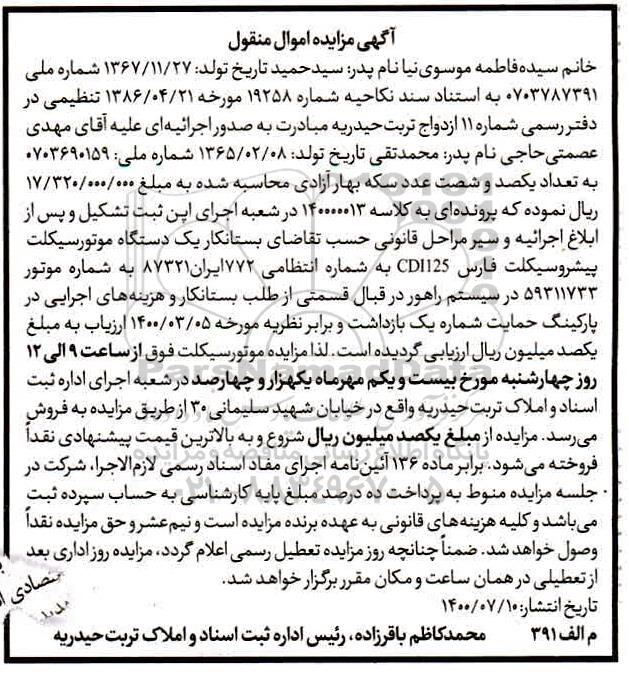 آگهی مزایده اموال منقول
خانم سیده‌فاطمه موسوی‌نیا نام پدر: سیدحمید تاریخ تولد: ۱۳۶۷/۱۱/۲۷ شماره ملی
۰۷۰۳۷۸۷۳۹۱ به استناد سند نکاحیه شماره ۱۹۲۵۸ مورخه ۱۳۸۶/۰۴/۲۱ تنظیمی در
دفتر رسمی شماره ۱۱ ازدواج تربت‌حیدریه مبادرت به صدور اجرائیه‌ای علیه آقای مهدی
عصمتی‌حاجی نام پدر: محمدتقی تاریخ تولد: ۱۳۶۵/۰۲/۰۸ شماره ملی: ۰۷۰۳۶۹۰۱۵۹
به تعداد یکصد و شصت عدد سکه بهار آزادی محاسبه شده به مبلغ ۱۷/۳۲۰/۰۰۰/۰۰۰
ریال نموده که پرونده‌ای به کلاسه ۱۴۰۰۰۰۰۱۳ در شعبه اجرای این ثبت تشکیل و پس از
ابلاغ اجرائیه و سیر مراحل قانونی حسب تقاضای بستانکار یک دستگاه موتورسیکلت
پیشروسیکلت فارس CDI125 به شماره انتظامی ۷۷۲ایران۸۷۳۲۱ به شماره موتور
۵۹۳۱۱۷۳۳ در سیستم راهور در قبال قسمتی از طلب بستانکار و هزینه‌های اجرایی در
پارکینگ حمایت شماره یک بازداشت و برابر نظریه مورخه ۱۴۰۰/۰۳/۰۵ ارزیاب به مبلغ
یکصد میلیون ریال ارزیابی گردیده است. لذا مزایده موتورسیکلت فوق از ساعت ۹ الی ۱۲
روز چهارشنبه مورخ بیست و یکم مهرماه یکهزار و چهارصد در شعبه اجرای اداره ثبت
اسناد و املاک تربت‌حیدریه واقع در خیابان شهید سلیمانی ۳۰ از طریق مزایده به فروش
می‌رسد. مزایده از مبلغ یکصد میلیون ریال شروع و به بالاترین قیمت پیشنهادی نقداً
فروخته می‌شود. برابر ماده ۱۳۶ آئین‌نامه اجرای مفاد اسناد رسمی لازم‌الاجرا، شرکت در
جلسه مزایده منوط به پرداخت ده درصد مبلغ پایه کارشناسی به حساب سپرده ثبت
می‌باشد و کلیه هزینه‌های قانونی به عهده برنده مزایده است و نیم‌عشر و حق مزایده نقداً
وصول خواهد شد. ضمناً چنانچه روز مزایده تعطیل رسمی اعلام گردد، مزایده روز اداری بعد
از تعطیلی در همان ساعت و مکان مقرر برگزار خواهد شد.
تاریخ انتشار: ۱۴۰۰/۰۷/۱۰
م الف ۳۹۱ محمدکاظم باقرزاده، رئیس اداره ثبت اسناد و املاک تربت‌حیدریه
ParsNamadData
پایگاه اطلاع رسانی مناقصه و مزایده
۰۲۱-۸۸۳۴۹۶۷۰-۵